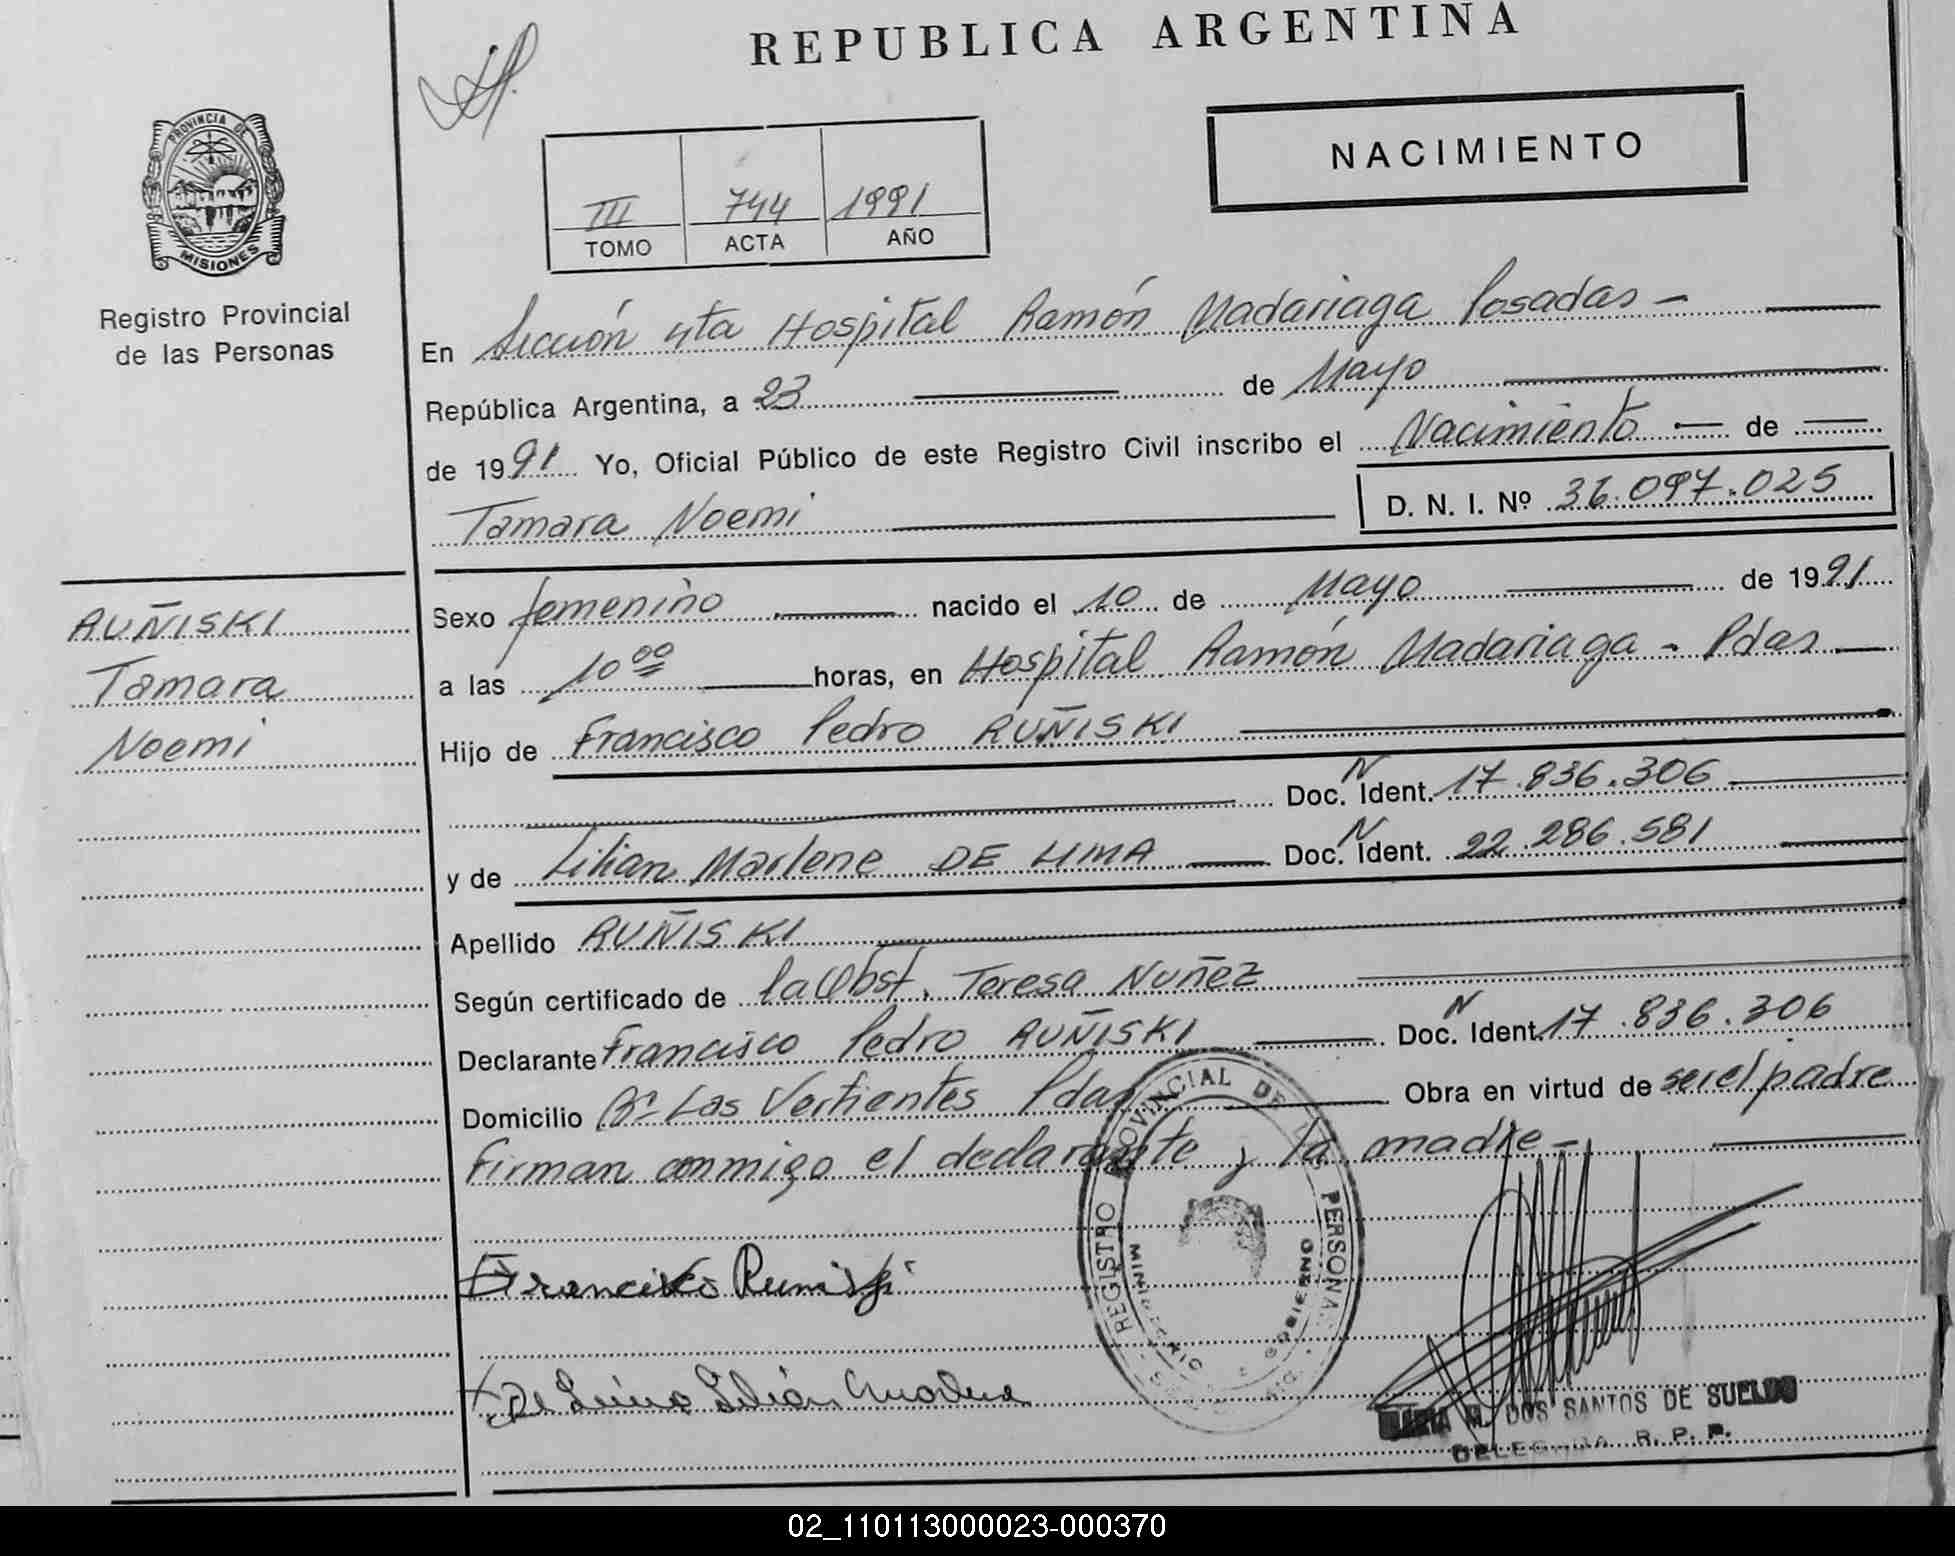 REPUBLICA ARGENTINA
PROVINCIA DE
MISIONES
Registro Provincial
de las Personas
III 744 1991
TOMO ACTA AÑO
NACIMIENTO
En Sección 4ta Hospital Ramón Madariaga Posadas -
República Argentina, a 23 de Mayo
de 1991 Yo, Oficial Público de este Registro Civil inscribo el Nacimiento de
Tamara Noemi D. N. I. Nº 36.097.025
RUÑISKI
Tamara
Noemi
Sexo femenino nacido el 10 de Mayo de 1991
a las 10 00 horas, en Hospital Ramón Madariaga - Pdas
Hijo de Francisco Pedro RUÑISKI
Doc. N Ident. 17.836.306
y de Lilian Marlene DE LIMA Doc. N Ident. 22.286.581
Apellido RUÑISKI
Según certificado de la Obst. Teresa Nuñez
Declarante Francisco Pedro RUÑISKI Doc. N Ident. 17.836.306
Domicilio Bº Las Vertientes Pdas Obra en virtud de ser el padre
Firman conmigo el declarante y la madre -
REGISTRO PROVINCIAL DE LAS PERSONAS
MINISTERIO GOBIERNO
Francisko Runiski
De Lima Lilián Marlene
MARIA M. DOS SANTOS DE SUELDO
DELEGADA R. P. P.
02_110113000023-000370